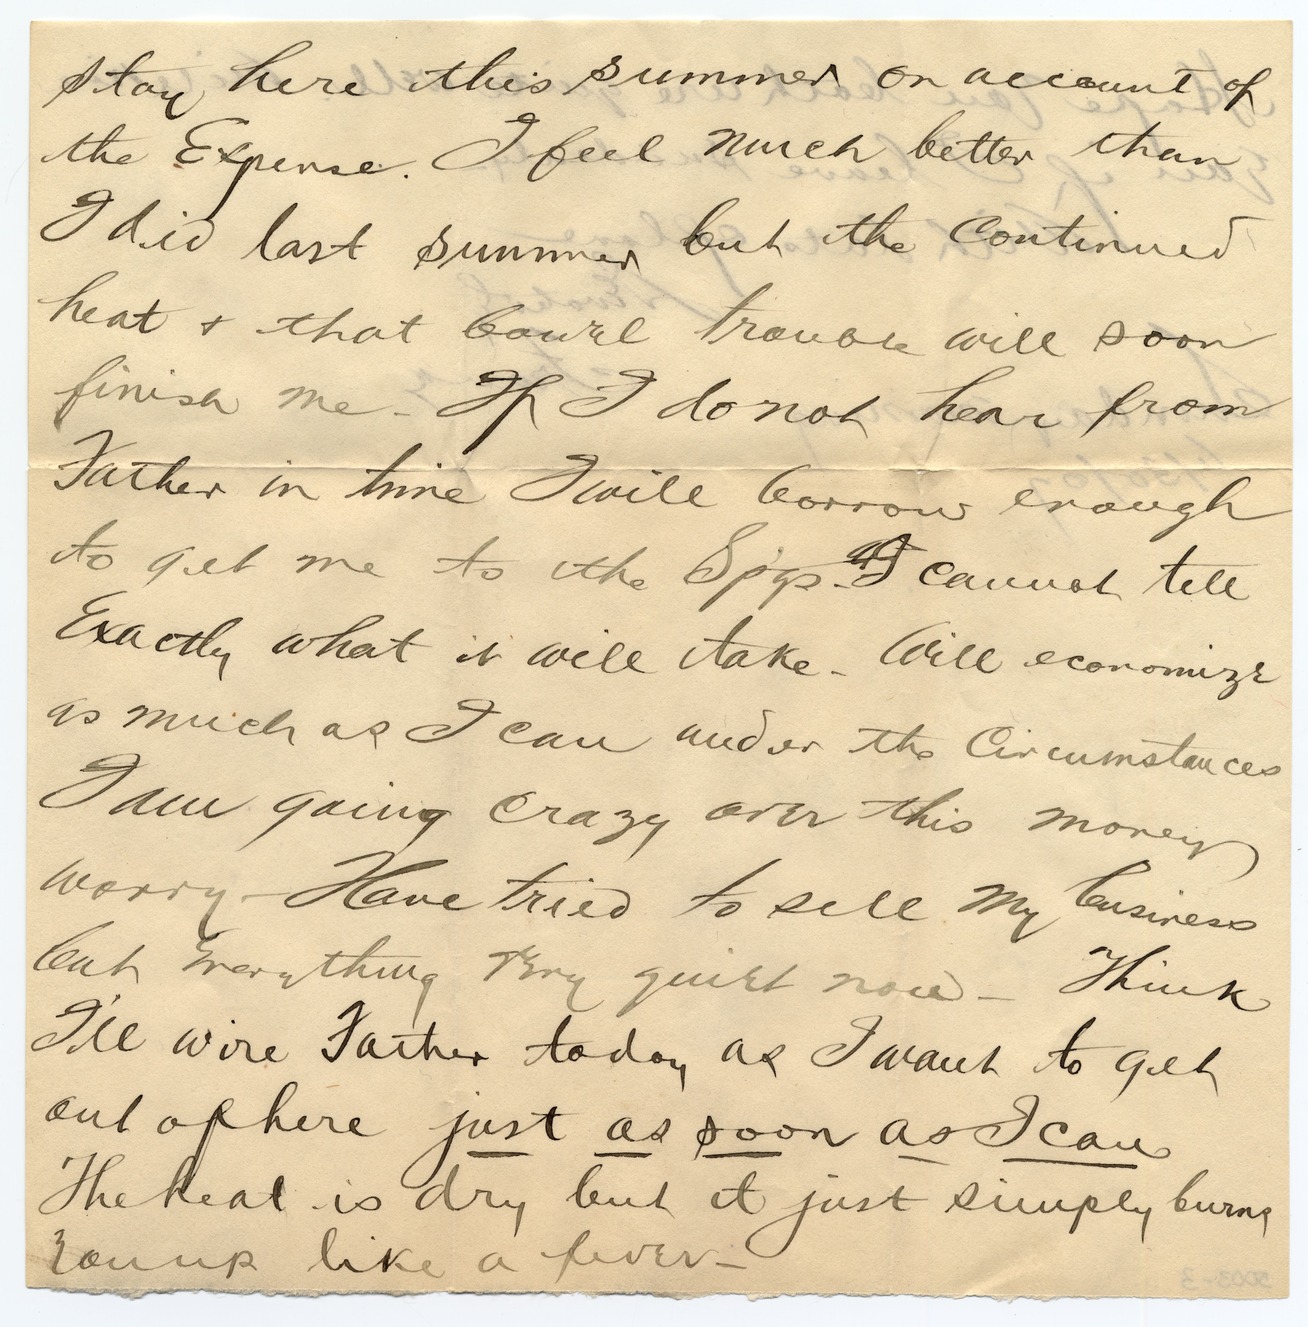 stay here this summer on account of
the Expense. I feel much better than
I did last summer but the Continued
heat & that bowel trouble will soon
finish me - If I do not hear from
Father in time I will borrow enough
to get me to the Spgs. I cannot tell
Exactly what it will take - Will economize
as much as I can under the Circumstances
I am going crazy over this money
worry - Have tried to sell my business
but Everything very quiet now - Think
I'll wire Father today as I want to get
out of here just as soon as I can
The heat is dry but it just simply burns
you up like a fever -